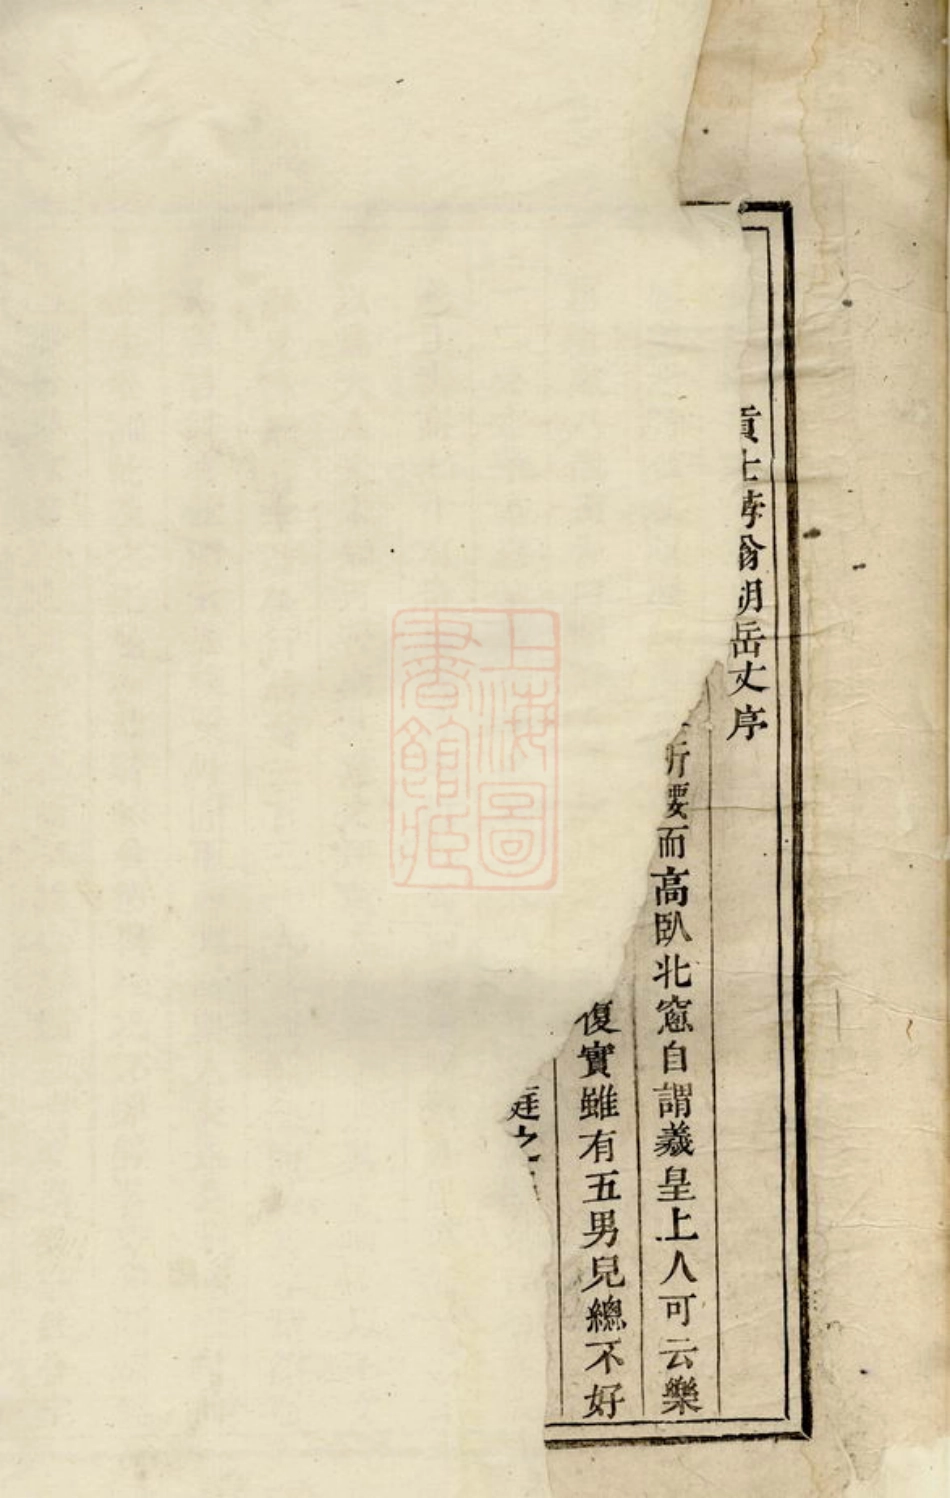 貢士翁胡岳丈序
折腰而高臥北窓自謂羲皇上人可云樂
復實雖有五男兒總不好
之
上海圖
書館藏